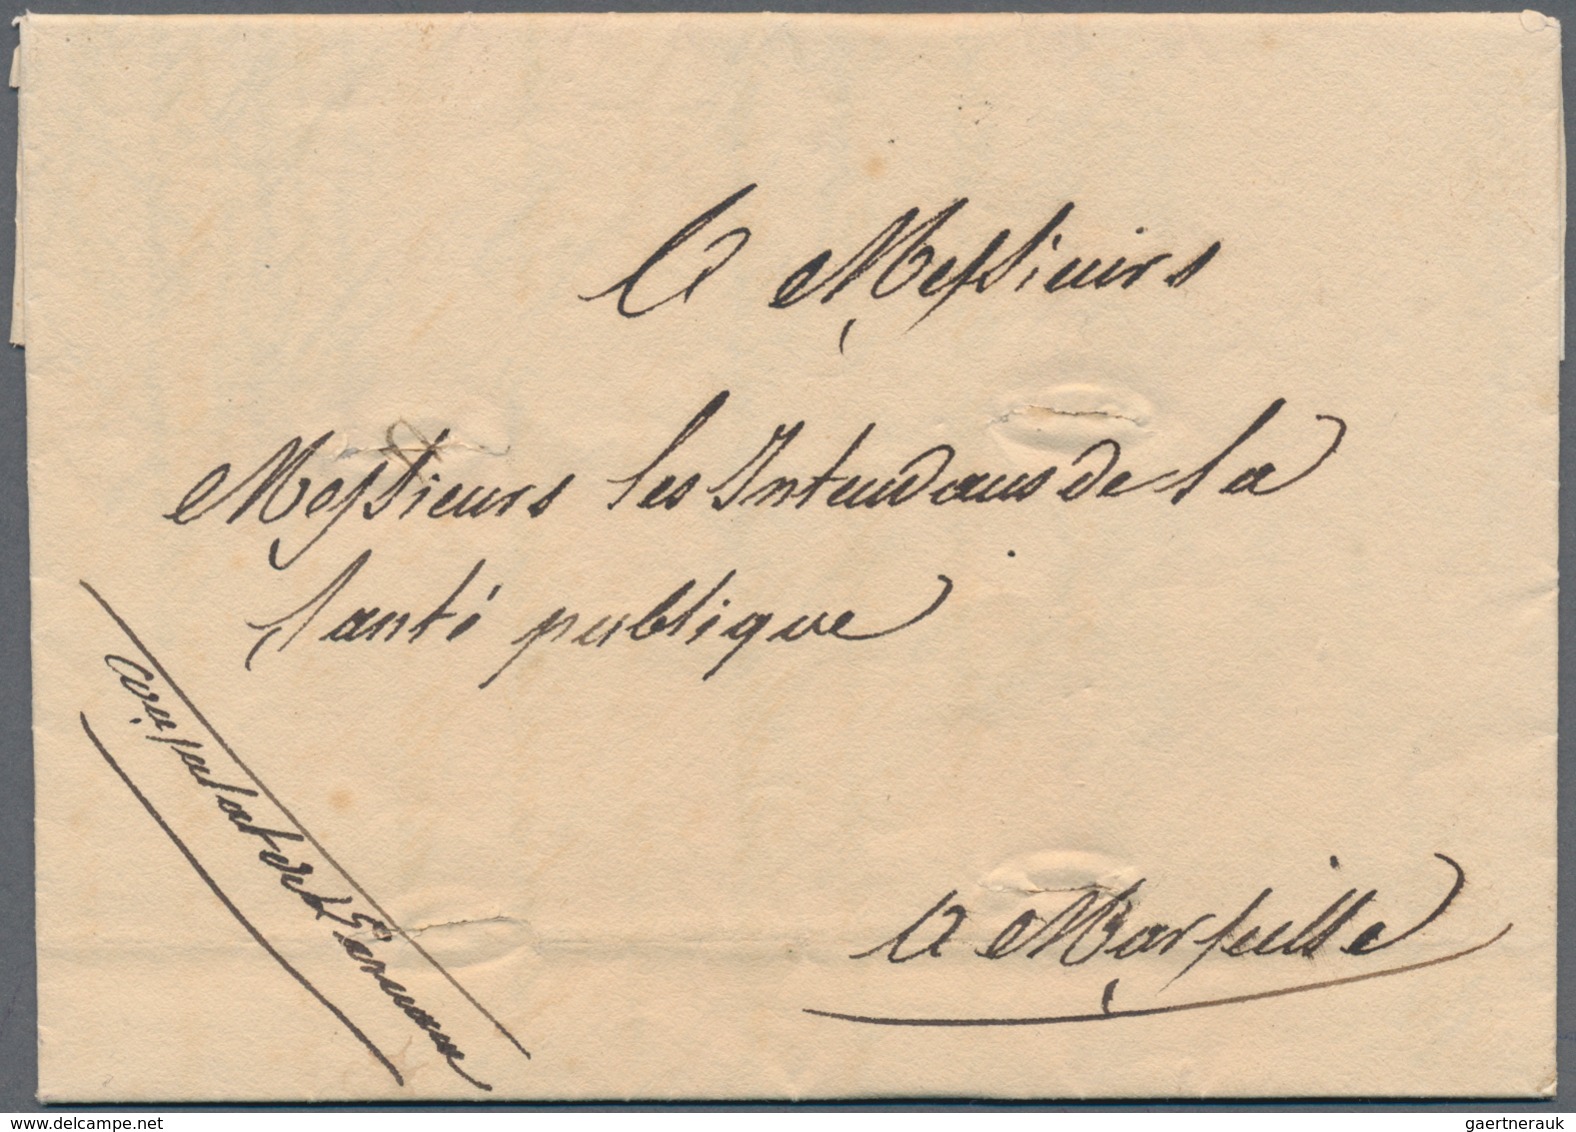 A Messieurs
Messieurs les Intendans de la
Santé publique
A Marseille
Consulat de
gaertnerauk @ delcampe.net